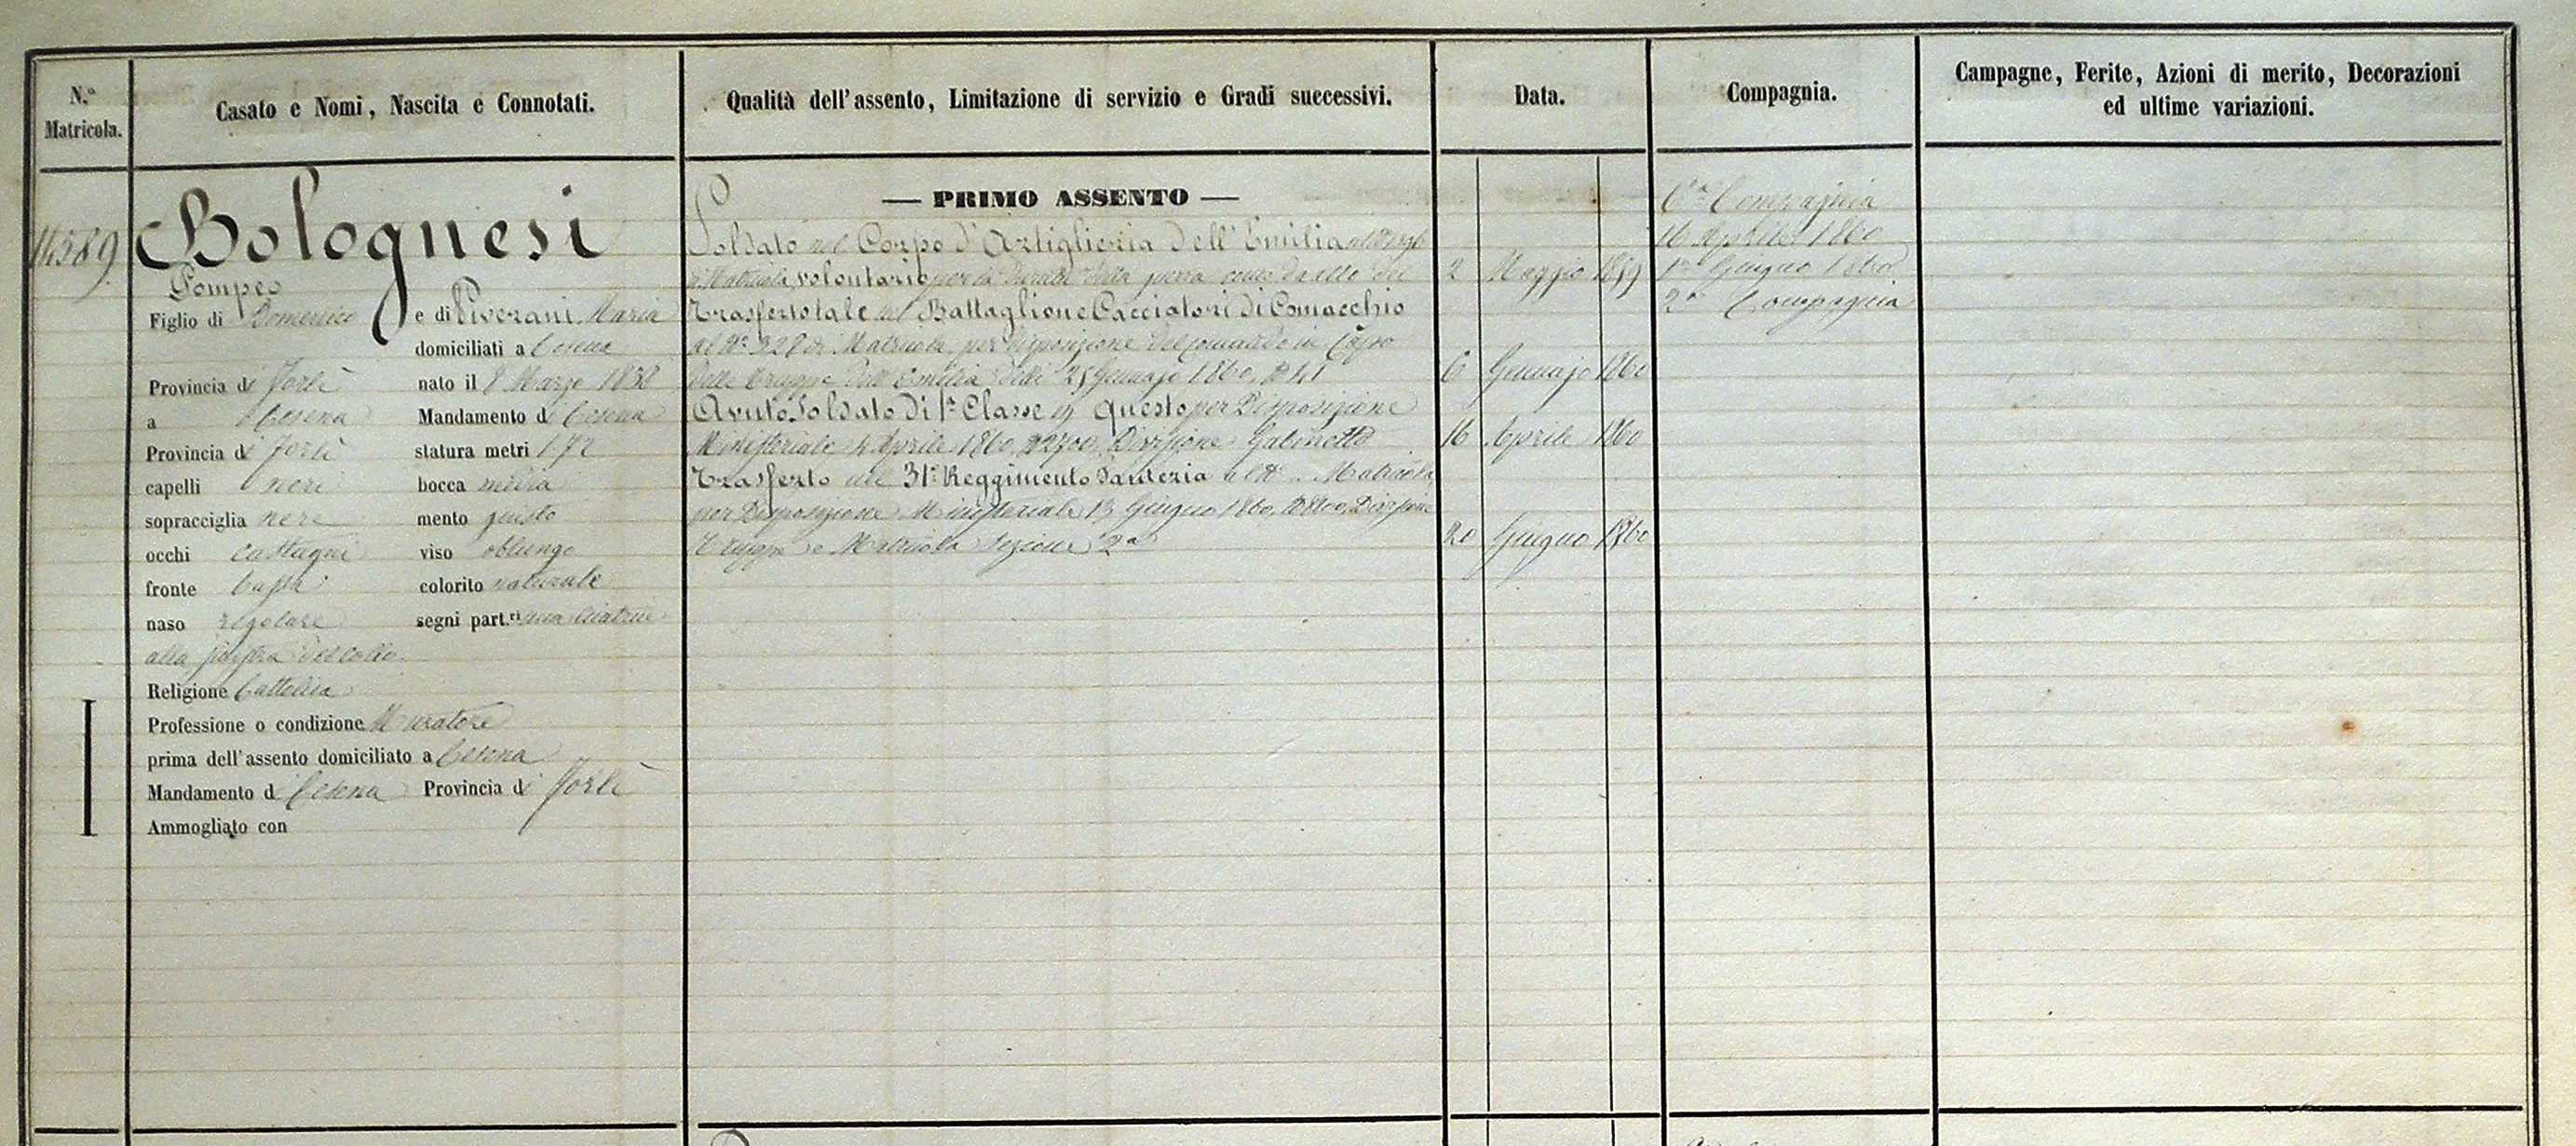 N.º
Matricola.
Casato e Nomi, Nascita e Connotati.
Qualità dell'assento, Limitazione di servizio e Gradi successivi.
Data.
Compagnia.
Campagne, Ferite, Azioni di merito, Decorazioni
ed ultime variazioni.
14589
Bolognesi
Pompeo
Figlio di Domenico e di Piverani Maria
domiciliati a Cesena
Provincia di Forlì nato il 8 Marzo 1838
a Cesena Mandamento di Cesena
Provincia di Forlì statura metri 1 72
capelli neri bocca media
sopracciglia nere mento giusto
occhi castagni viso oblungo
fronte bassa colorito naturale
naso regolare segni part.ri una cicatrice
alla sinistra del collo.
Religione Cattolica
Professione o condizione Muratore
prima dell'assento domiciliato a Cesena
Mandamento di Cesena Provincia di Forlì
Ammogliato con
— PRIMO ASSENTO —
Soldato nel Corpo d'Artiglieria dell'Emilia
di Matricola, volontario per la durata della guerra come da atto del 2 Maggio 1859
Trasferto tale nel Battaglione Cacciatori di Comacchio
al Nº 328 di Matricola per disposizione del comando in Capo
delle truppe dell'Emilia delli 25 Gennajo 1860. Nº 41 6 Gennajo 1860
Avuto Soldato di 1ª Classe in questo per Disposizione
Ministeriale 4 Aprile 1860, Nº 2700, Divisione Gabinetto 16 Aprile 1860
Trasferto nel 31º Reggimento Fanteria al Nº Matricola
per Disposizione Ministeriale 13 Giugno 1860. Nº 8800, Divisione
Truppa e Matricola Sezione 2ª 20 Giugno 1860
6ª Compagnia
16 Aprile 1860
1º Giugno 1860
2ª Compagnia